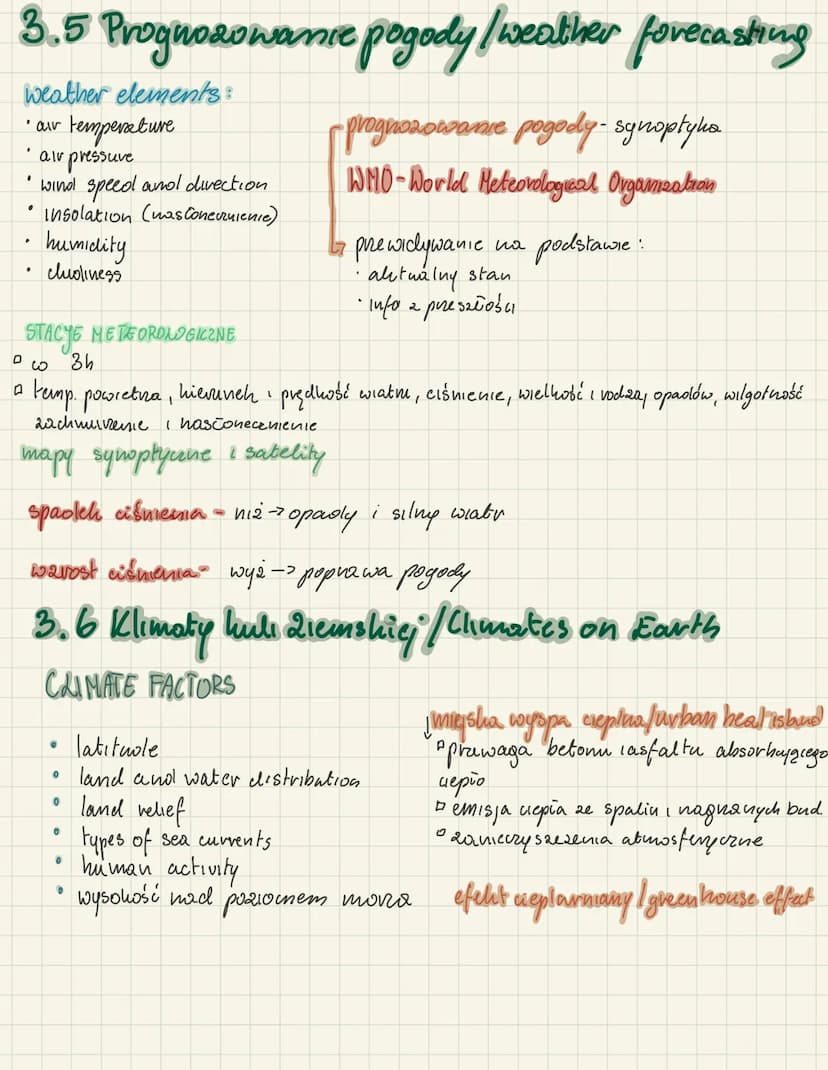 3.5 Prognozowanie pogody/weather forecasting
weather elements:
• air temperature
• air pressure
• wind speed and direction
• insolation (nasłonecznienie)
• humidity
• cludiness
prognozowanie pogody - synoptyka
WMO-World Meteorological Organization
przewidywanie na podstawie:
• aktualny stan
• info z przeszłości
STACJE METEOROLOGICZNE
▫ co 3h
▫ temp. powietrza, kierunek i prędkość wiatru, ciśnienie, wielkość i rodzaj opadów, wilgotność
zachmurzenie i nasłonecznienie
mapy synoptyczne i satelity
spadek ciśnienia - niż → opady i silny wiatr
wzrost ciśnienia - wyż → poprawa pogody
3.6 Klimaty kuli ziemskiej/Climates on Earth
CLIMATE FACTORS
• latitude
• land and water distribution
• land relief
• types of sea currents
• human activity
• wysokość nad poziomem morza
↓ miejska wyspa cieplna/urban heat island
▫ przewaga betonu i asfaltu absorbującego
ciepło
▫ emisja ciepła ze spalin i nagrzanych bud.
▫ zanieczyszczenia atmosferyczne
efekt cieplarniany/greenhouse effect